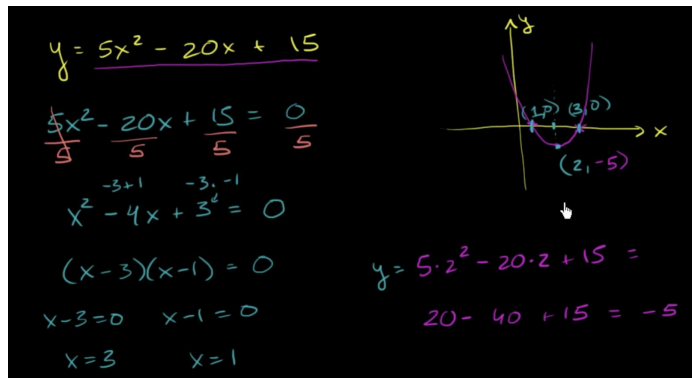 y = 5x² - 20x + 15
5x² - 20x + 15 = 0
5 5 5 5
-3+1 -3·-1
x² - 4x + 3 = 0
(x-3)(x-1) = 0
x-3=0 x-1=0
x=3 x=1
y
(1,0) (3,0)
x
(2,-5)
y = 5·2² - 20·2 + 15 =
20 - 40 + 15 = -5